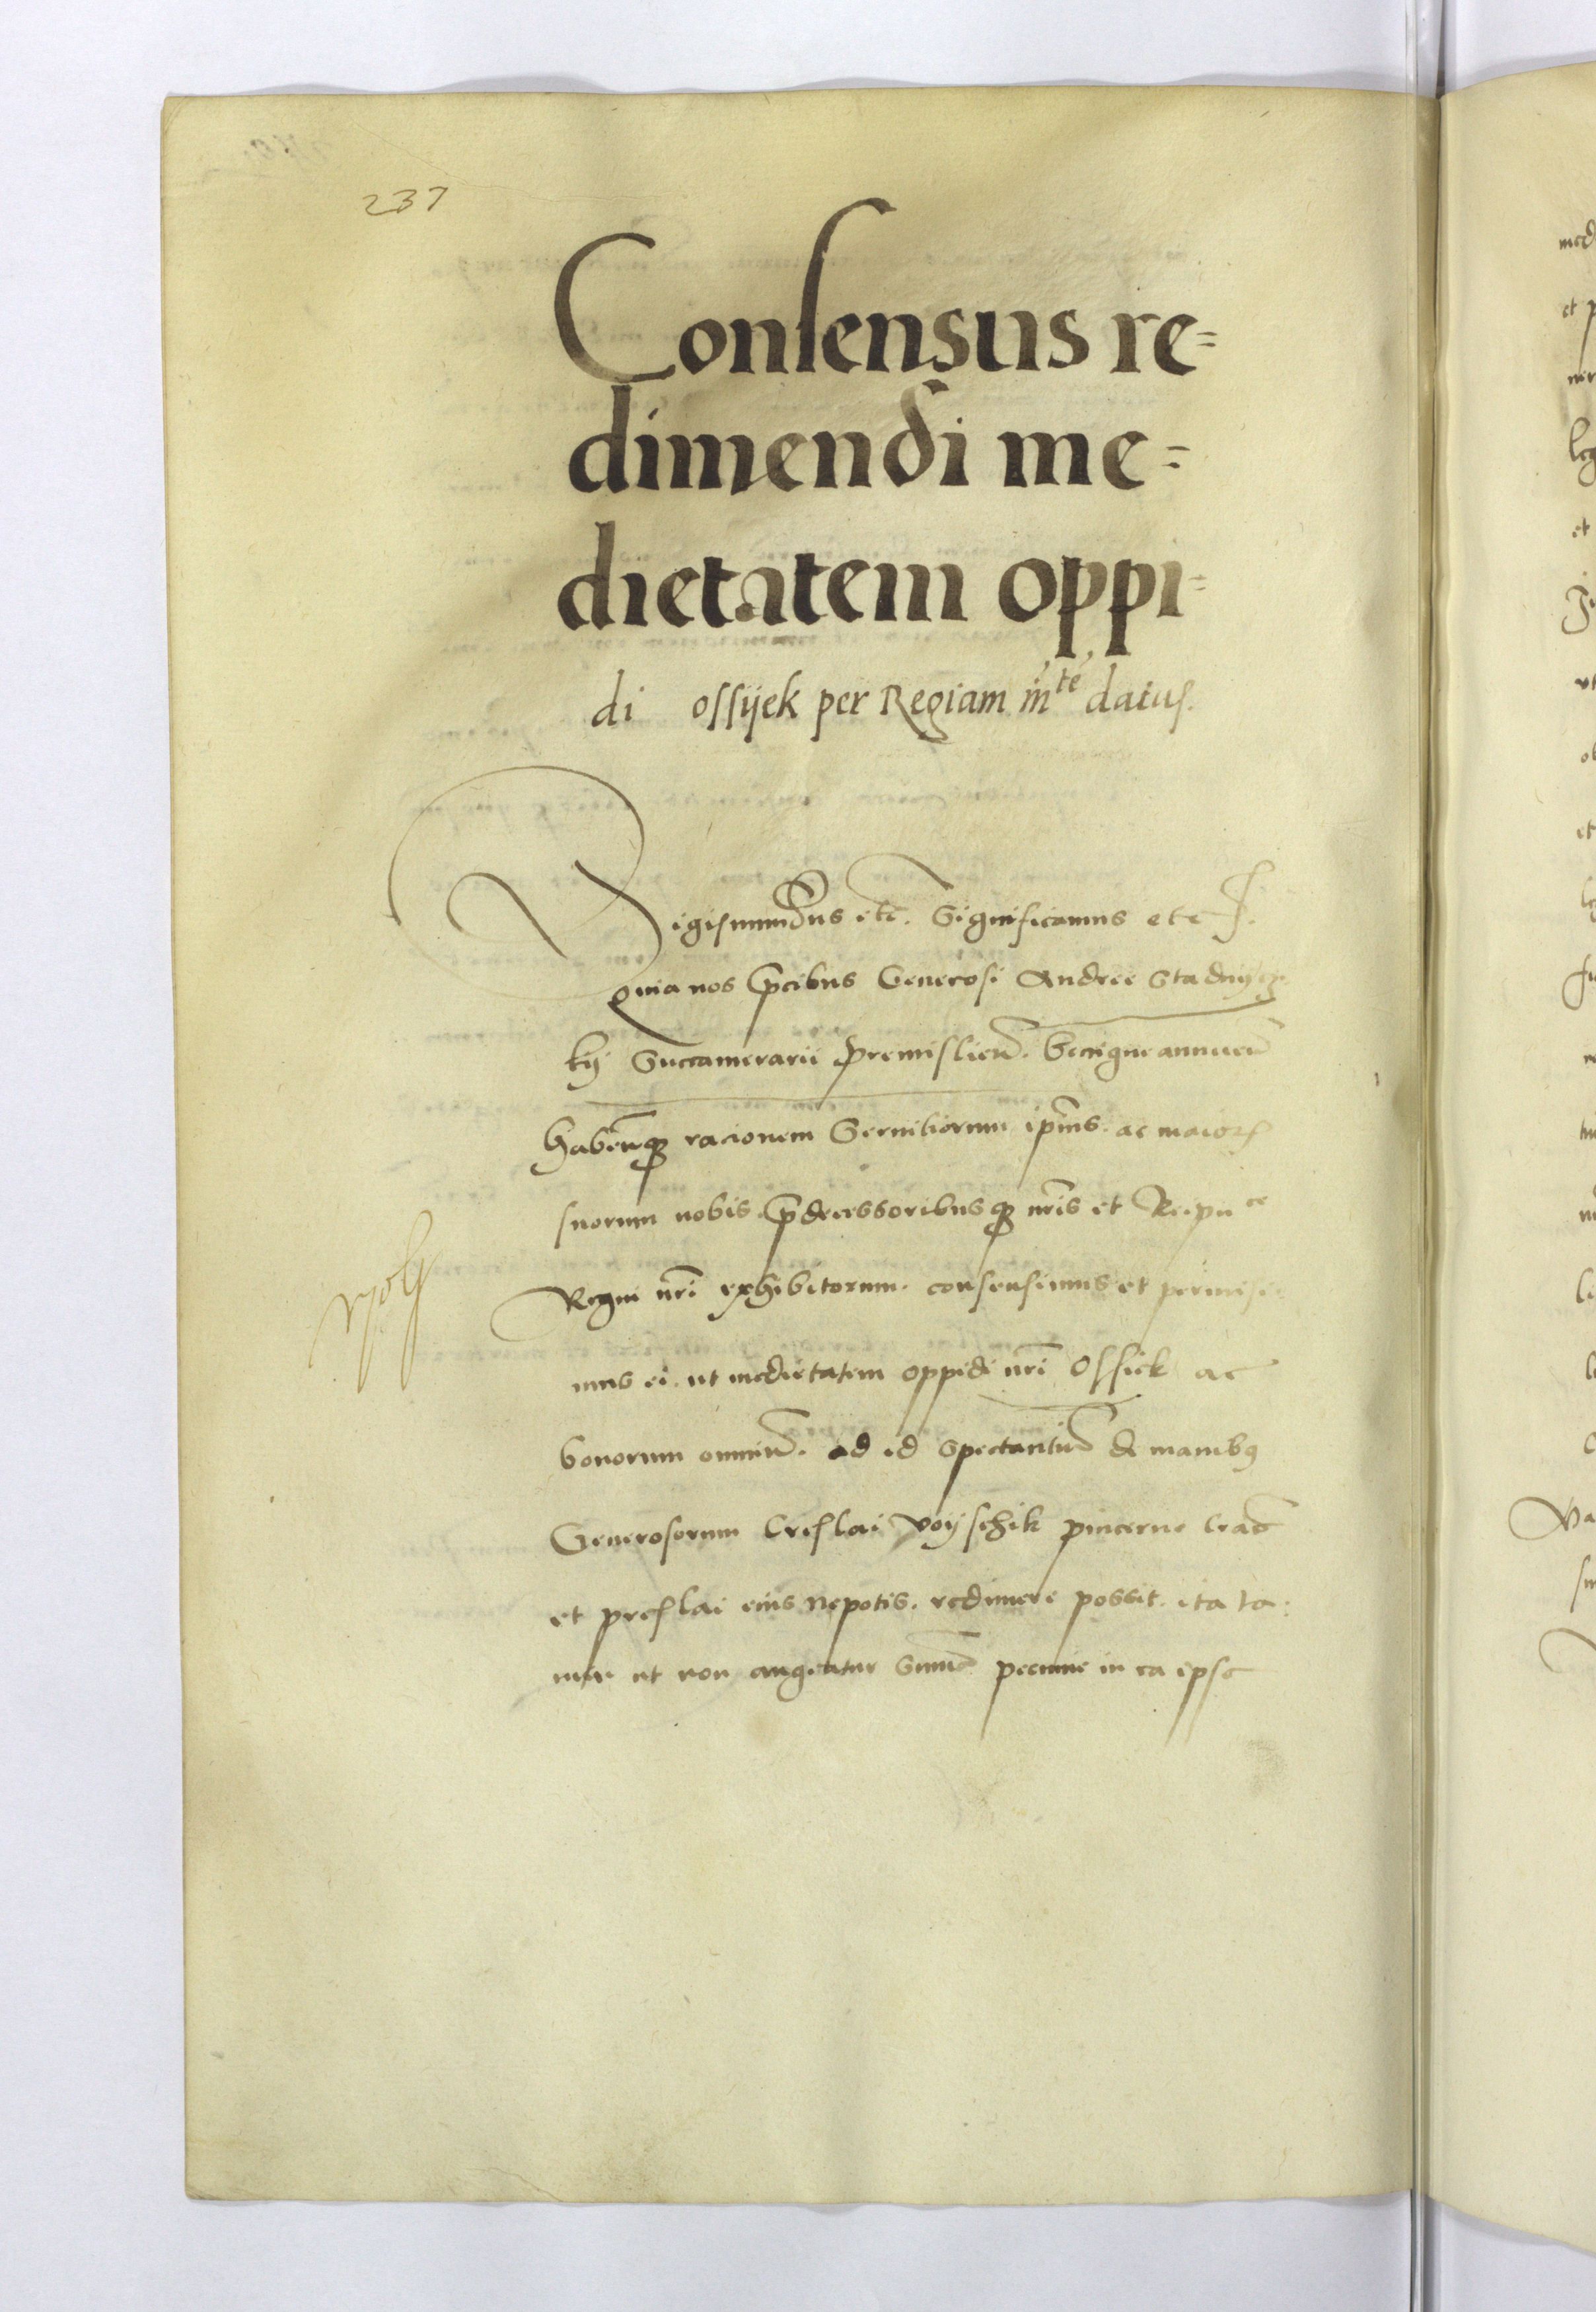 237
Consensus re=
dimendi me=
dietatem oppi=
di ossijek per Regiam m^te datus.
Sigismundus etc. Significamus etc.
Quia nos p̄cibus Generosi Andree Stadnijcz
kij Succamerarii premislien̄. benigne annuen̄
haben̄q3 racionem Servitiorum ip̄ius. ac maior
suorum nobis. p̄decessoribusq3 nr̄is et Reipu^ce
Regni nr̄i exhibitorum. consensimus et permisi=
mus ei. ut medietatem oppidi nr̄i Ossiek ac
bonorum omniū. ad id spectantiū de manibus
Generosorum Creslai Voijschik pincerne Crac̄
et preslai eius nepotis. redimere possit. ita ta:
men ut non augeatur Sum̄a pecunie in ea ipsa